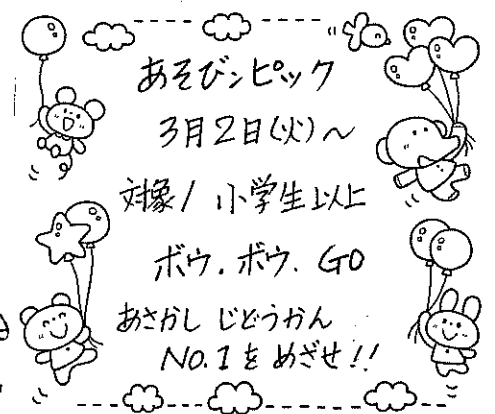 あそびンピック
3月2日(火)～
対象/ 小学生以上
ボウ.ボウ. GO
あさかし じどうかん
NO.1をめざせ!!